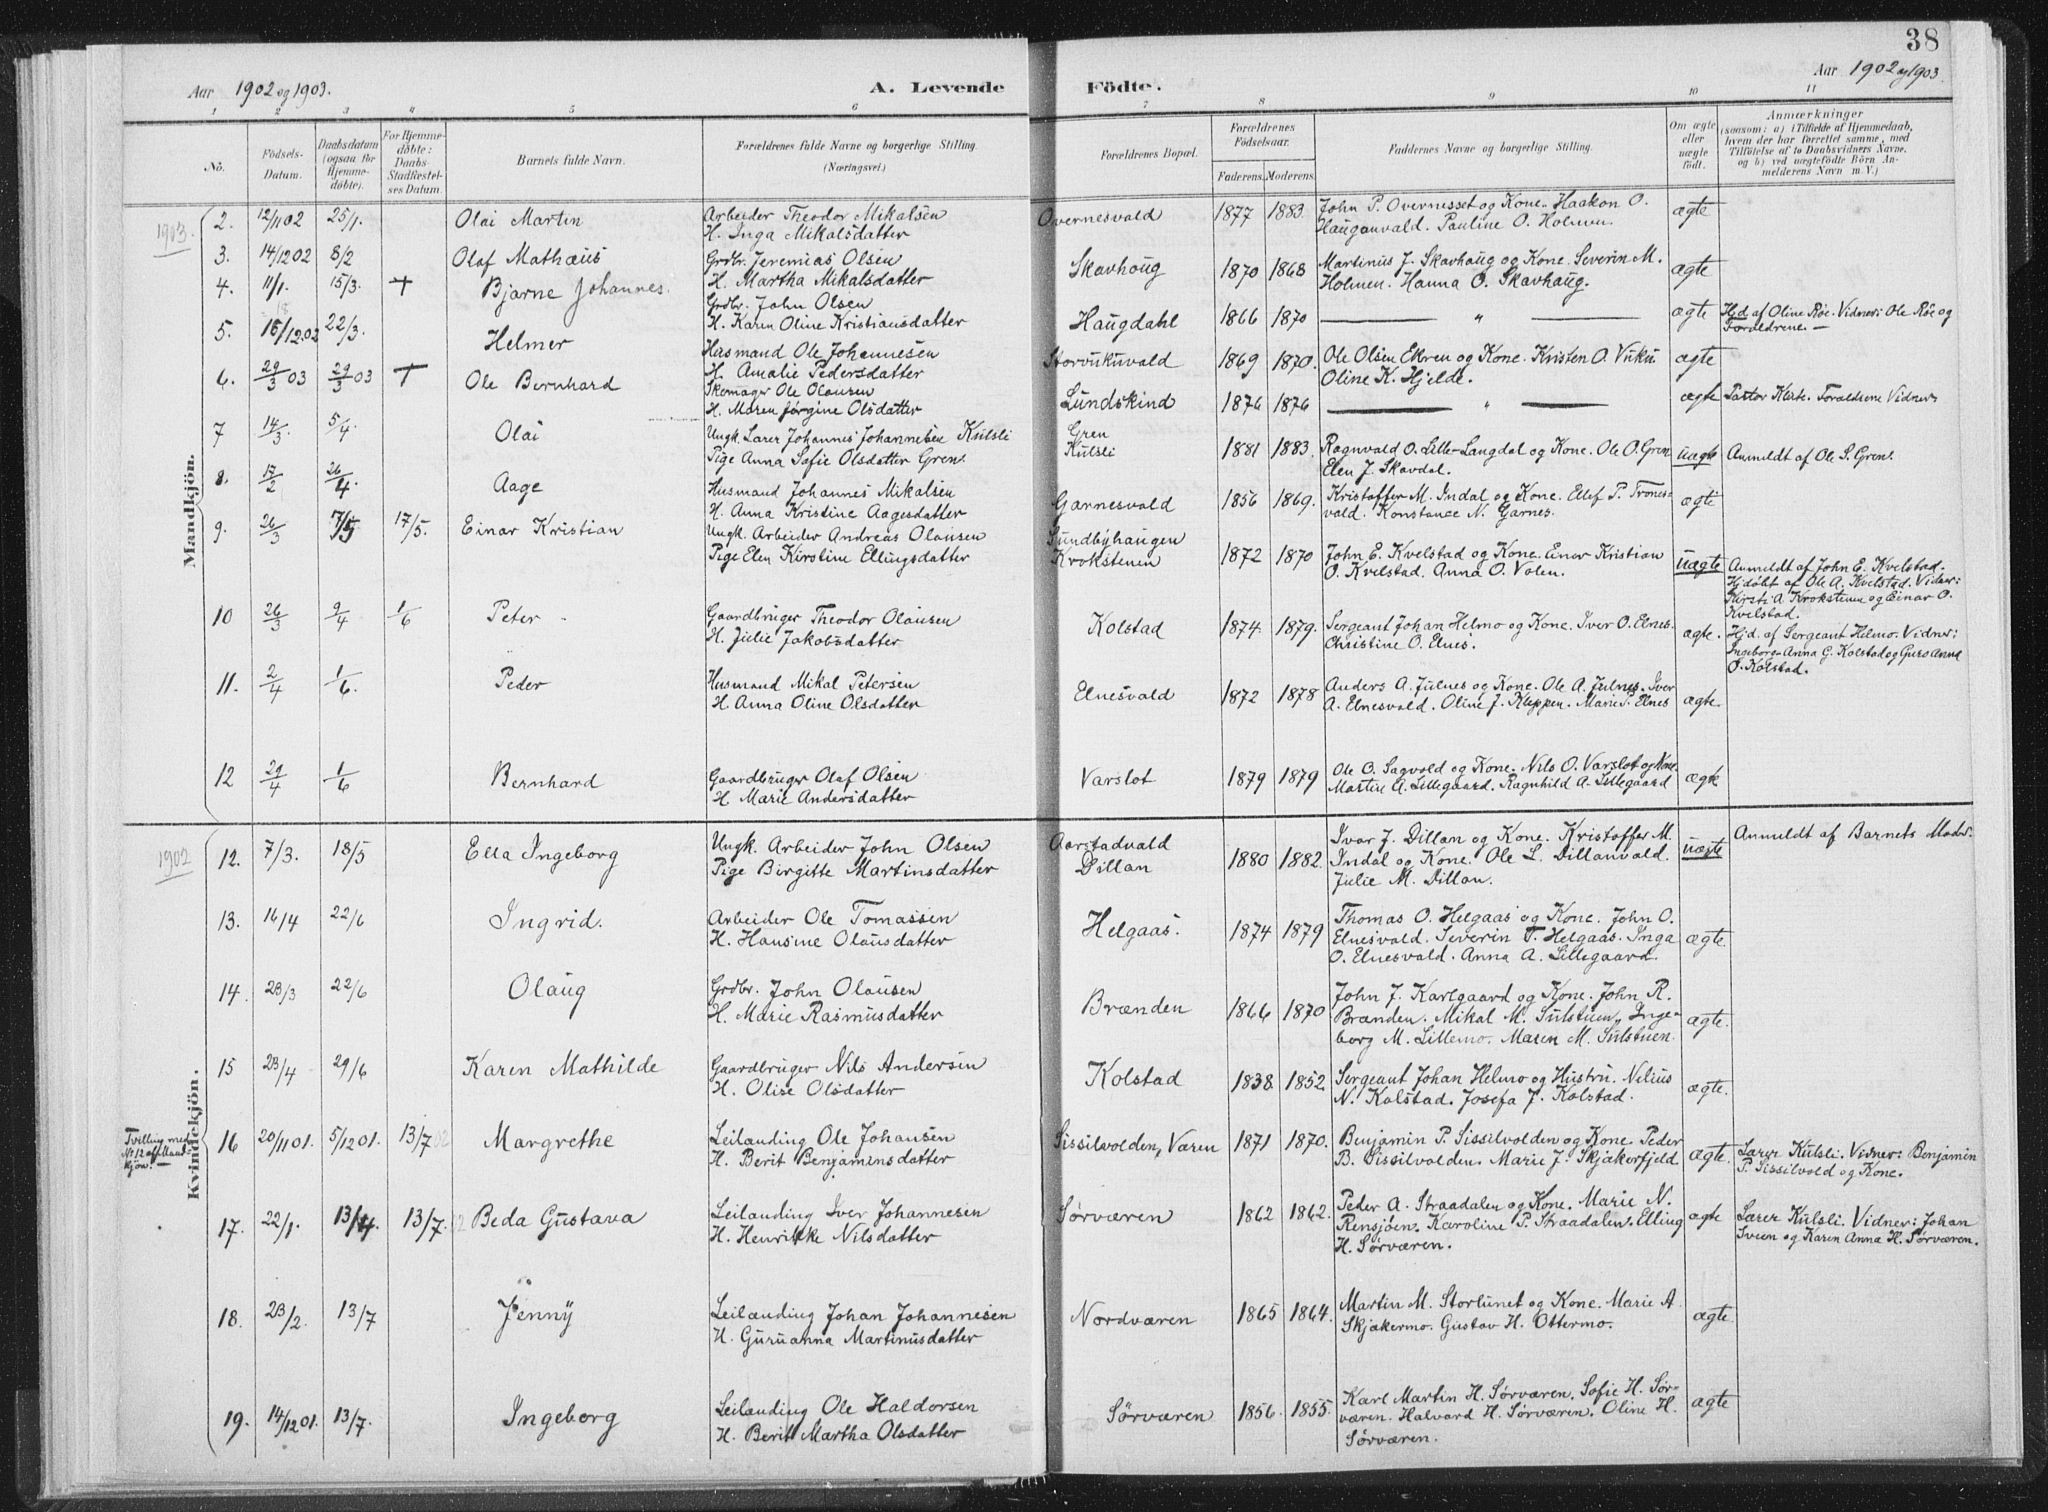 38
Aar 1902 og 1903.
A. Levende
Födte.
Aar 1902 og 1903.
1 2 3 4 5 6 7 8 9 10 11
No.
Födsels-
Datum.
Daabsdatum
(ogsaa for
Hjemme-
döbte).
For Hjemme-
döbte:
Daabs-
Stadfæstel-
ses Datum.
Barnets fulde Navn.
Forældrenes fulde Navne og borgerlige Stilling.
(Næringsvei.)
Forældrenes Bopæl.
Forældrenes
Födselsaar.
Faderens. Moderens.
Faddernes Navne og borgerlige Stilling.
Om ægte
eller
uægte
født.
Anmærkninger
(saasom: a) i Tilfælde af Hjemmedaab,
hvem der har forrettet samme, med
Tilföielse af to Daabsvidners Navne,
og b) ved uægtefödte Börn An-
melderens Navn m. V.)
1903
Mandkjön.
2. 12/11 02 25/1. Olai Martin
Arbeider Theodor Mikalsen
H. Inga Mikalsdatter
Overnesvald 1877 1883
John P. Overnesset og Kone. Haakon O.
Hauganvald. Pauline O. Holmen.
ægte
3. 14/12 02 8/2 Olaf Mathæus
Grdbr. Jeremias Olsen
H. Martha Mikalsdatter
Skavhoug 1870 1868
Martinus J. Skavhaug og Kone. Severin M.
Holmen. Hanna O. Skavhaug.
ægte
4. 11/1. 15/3. + Bjarne Johannes.
Grdbr. John Olsen
H. Karen Oline Kristiansdatter
Haugdahl 1866 1870 — " —
ægte
Hjd af Oline Röe. Vidner: Ole Röe og
Forældrene. —
5. 15/12 02 22/3. Helmer
Husmand Ole Johannesen
H. Amalie Pedersdatter
Storvukuvald 1869 1870.
Ole Olsen Ekren og Kone. Kristen O. Vuku
Oline K. Hjelde.
ægte
6. 29/3 03 29/3 03 + Ole Bernhard
Skomager Ole Olausen
H. Maren Jørgine Olsdatter
Lundskind 1876 1876 — " —
ægte
Pastor Klüte. Forældrene Vidner
7 14/3. 5/4 Olai
Ungk. Lærer Johannes Johannesen Kulsli
Pige Anna Sofie Olsdatter Gren.
Gren
Kulsli
1881 1883.
Ragnvald O. Lille-Langdal og Kone. Ole O. Gren
Elen J. Skavdal.
uægte
Anmeldt af Ole S. Gren.
8. 17/2 26/4. Aage
Husmand Johannes Mikalsen
H. Anna Kristine Aagesdatter
Garnesvald 1856 1869.
Kristoffer M. Indal og Kone. Ellef P. Trones-
vald. Konstance N. Garnes.
ægte
9. 26/3 7/5 17/5. Einar Kristian
Ungk. Arbeider Andreas Olausen
Pige Elen Kirstine Ellingsdatter
Sundbyhaugen
Krokstenen
1872 1870
John E. Kvelstad og Kone. Einar Kristian
O. Kvelstad. Anna O. Volen.
uægte
Anmeldt af John E. Kvelstad.
Hjdöbt af Ole A. Kvelstad. Vidner:
Kirsti A. Krokstenen og Einar O.
Kvelstad.
10 26/3 9/4 1/6 Peter
Gaardbruger Theodor Olausen
H. Julie Jakobsdatter
Kolstad 1874. 1879.
Sergeant Johan Helmo og Kone. Iver O. Elnes.
Christine O. Elnes.
ægte.
Hjd. af Sergeant Helmo. Vidner:
Ingeborg-Anna G. Kolstad og Guro Anna
O. Kolstad.
11. 2/4 1/6. Peder
Husmand Mikal Petersen
H. Anna Oline Olsdatter
Elnesvald 1872 1878
Anders A. Julnes og Kone. Ole A. Julnes. Iver
A. Elnesvald. Oline J. Kleppen. Marie P. Elnes
ægte.
12 29/4 1/6 Bernhard
Gaardbruger Olaf Olsen
H. Marie Andersdatter
Varslot 1879 1879
Ole O. Sagvold og Kone. Nils O. Varslot og Kone.
Martin A. Lillegaard. Ragnhild A. Lillegaard
ægte
1902
Kvindekjön.
12. 7/3. 18/5 Ella Ingeborg
Ungk. Arbeider John Olsen
Pige Birgitte Martinsdatter
Aarstadvald
Dillan
1880 1882.
Ivar J. Dillan og Kone. Kristoffer M.
Indal og Kone. Ole L. Dillanvald.
Julie M. Dillan.
uægte
Anmeldt af Barnets Moder.
13. 16/4 22/6 Ingrid.
Arbeider Ole Tomassen
H. Hansine Olausdatter
Helgaas. 1874 1879
Thomas O. Helgaas og Kone. John O.
Elnesvald. Severin T. Helgaas. Inga
O. Elnesvald. Anna A. Lillegaard.
ægte.
14. 23/3 22/6 Olaug
Grdbr. John Olausen
H. Marie Rasmusdatter
Brænden 1866 1870
John J. Karlgaard og Kone. John R.
Brænden. Mikal M. Sulstuen, Inge-
borg M. Lillemo. Maren M. Sulstuen.
ægte.
15 23/4 29/6 Karen Mathilde
Gaardbruger Nils Andersen
H. Olise Olsdatter
Kolstad 1838 1852
Sergeant Johan Helmo og Hustru. Nilius
N. Kolstad. Josefa J. Kolstad.
ægte.
Tvilling med
No 12 af Mand-
kjön. —
16 20/11 01. 5/12 01. 13/7 02 Margrethe
Leilanding Ole Johansen
H. Berit Benjaminsdatter
Sissilvolden, Væren 1871 1870.
Benjamin P. Sissilvolden og Kone. Peder
B. Sissilvolden. Marie J. Skjækerfjeld
ægte.
Lærer Kulsli. Vidner: Benjamin
P. Sissilvold og Kone.
17. 22/1. 13/4. 13/7. Beda Gustava
Leilanding Iver Johannesen
H. Henrikke Nilsdatter
Sørværen 1862 1862.
Peder A. Straadalen og Kone. Marie N.
Rensjöen. Karoline P. Straadalen. Elling
H. Sørværen.
ægte
Lærer Kulsli. Vidner: Johan
Sveen og Karen Anna H. Sørværen.
18. 23/2. 13/7 Jenny
Leilanding Johan Johannesen
H. Guruanna Martinusdatter
Nordværen 1865 1864.
Martin M. Storlunet og Kone. Marie A.
Skjækermo. Gustav H. Ottermo.
ægte.
19. 14/12 01. 13/7. Ingeborg
Leilanding Ole Haldorsen
H. Berit Martha Olsdatter
Sörværen 1856. 1855.
Karl Martin H. Sørværen. Sofie H. Sør-
væren. Halvard H. Sørværen. Oline H.
Sørværen.
ægte